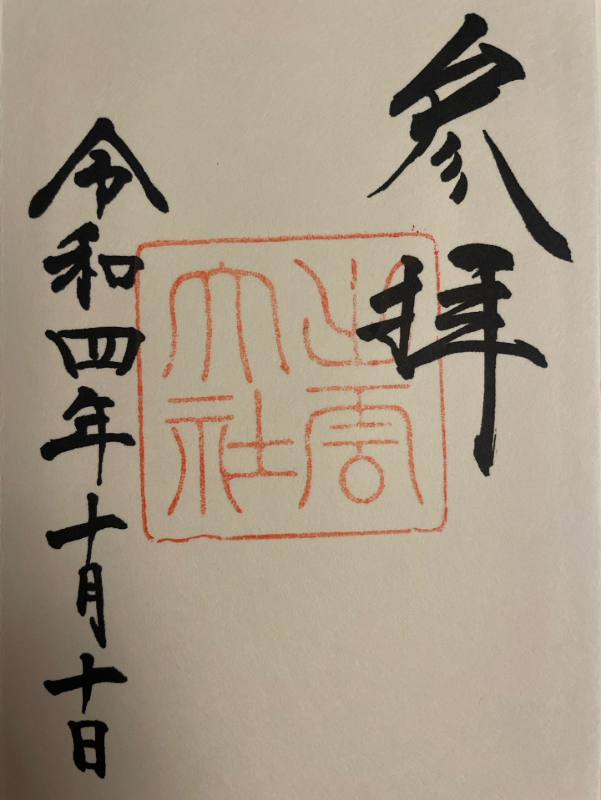 参拝
出雲大社
令和四年十月十日